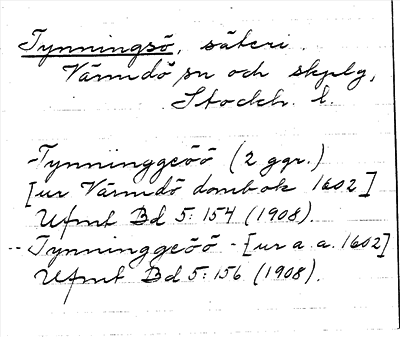 Tynningsö, säteri.
Värmdö sn och skplg,
Stockh. l.
Tynninggeöö (2 ggr.)
[ur Värmdö dombok 1602]
Ufmt Bd 5: 154 (1908).
-- Tynninggeöö - [ur a. a. 1602]
Ufmt Bd 5: 156 (1908).